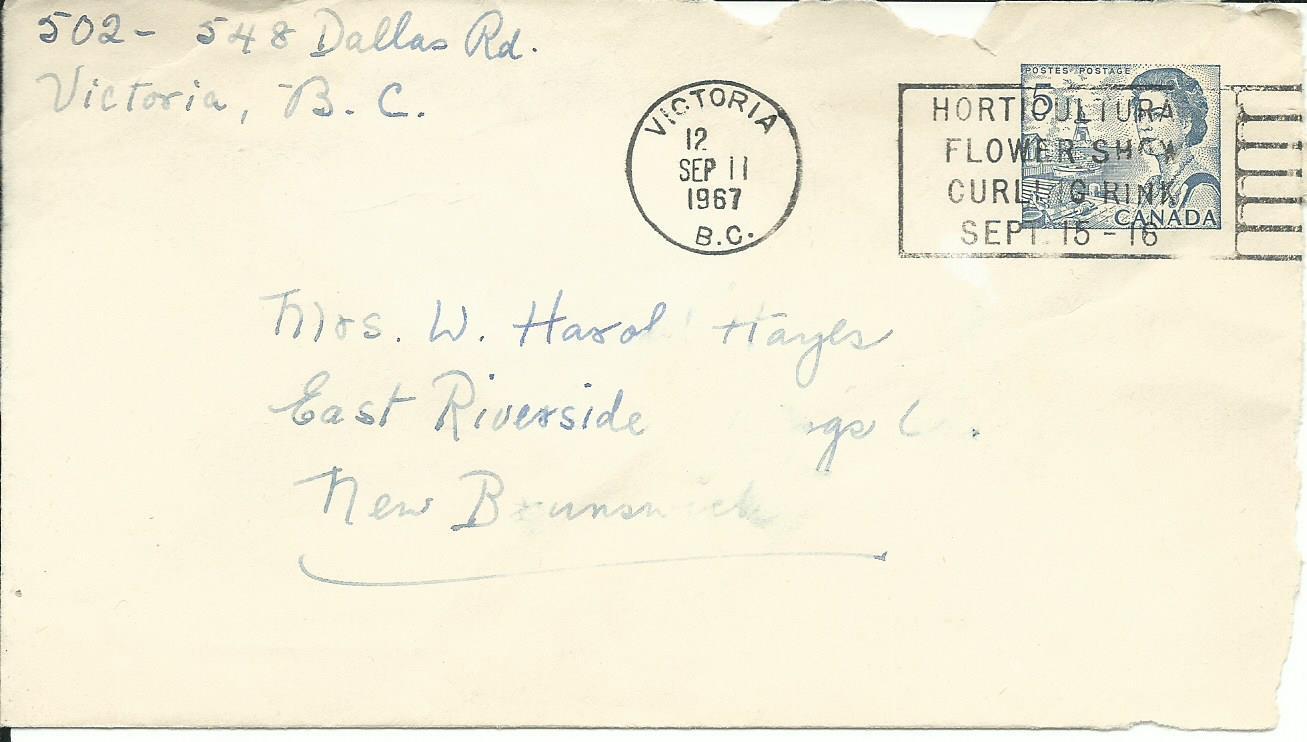 502- 548 Dallas Rd.
Victoria, B. C.
POSTES POSTAGE
5
CANADA
VICTORIA
12
SEP 11
1967
B.C.
HORTICULTURA
FLOWER SHOW
CURLING RINK
SEPT. 15 - 16
Mrs. W. Harold Hayes
East Riverside
New Brunswick